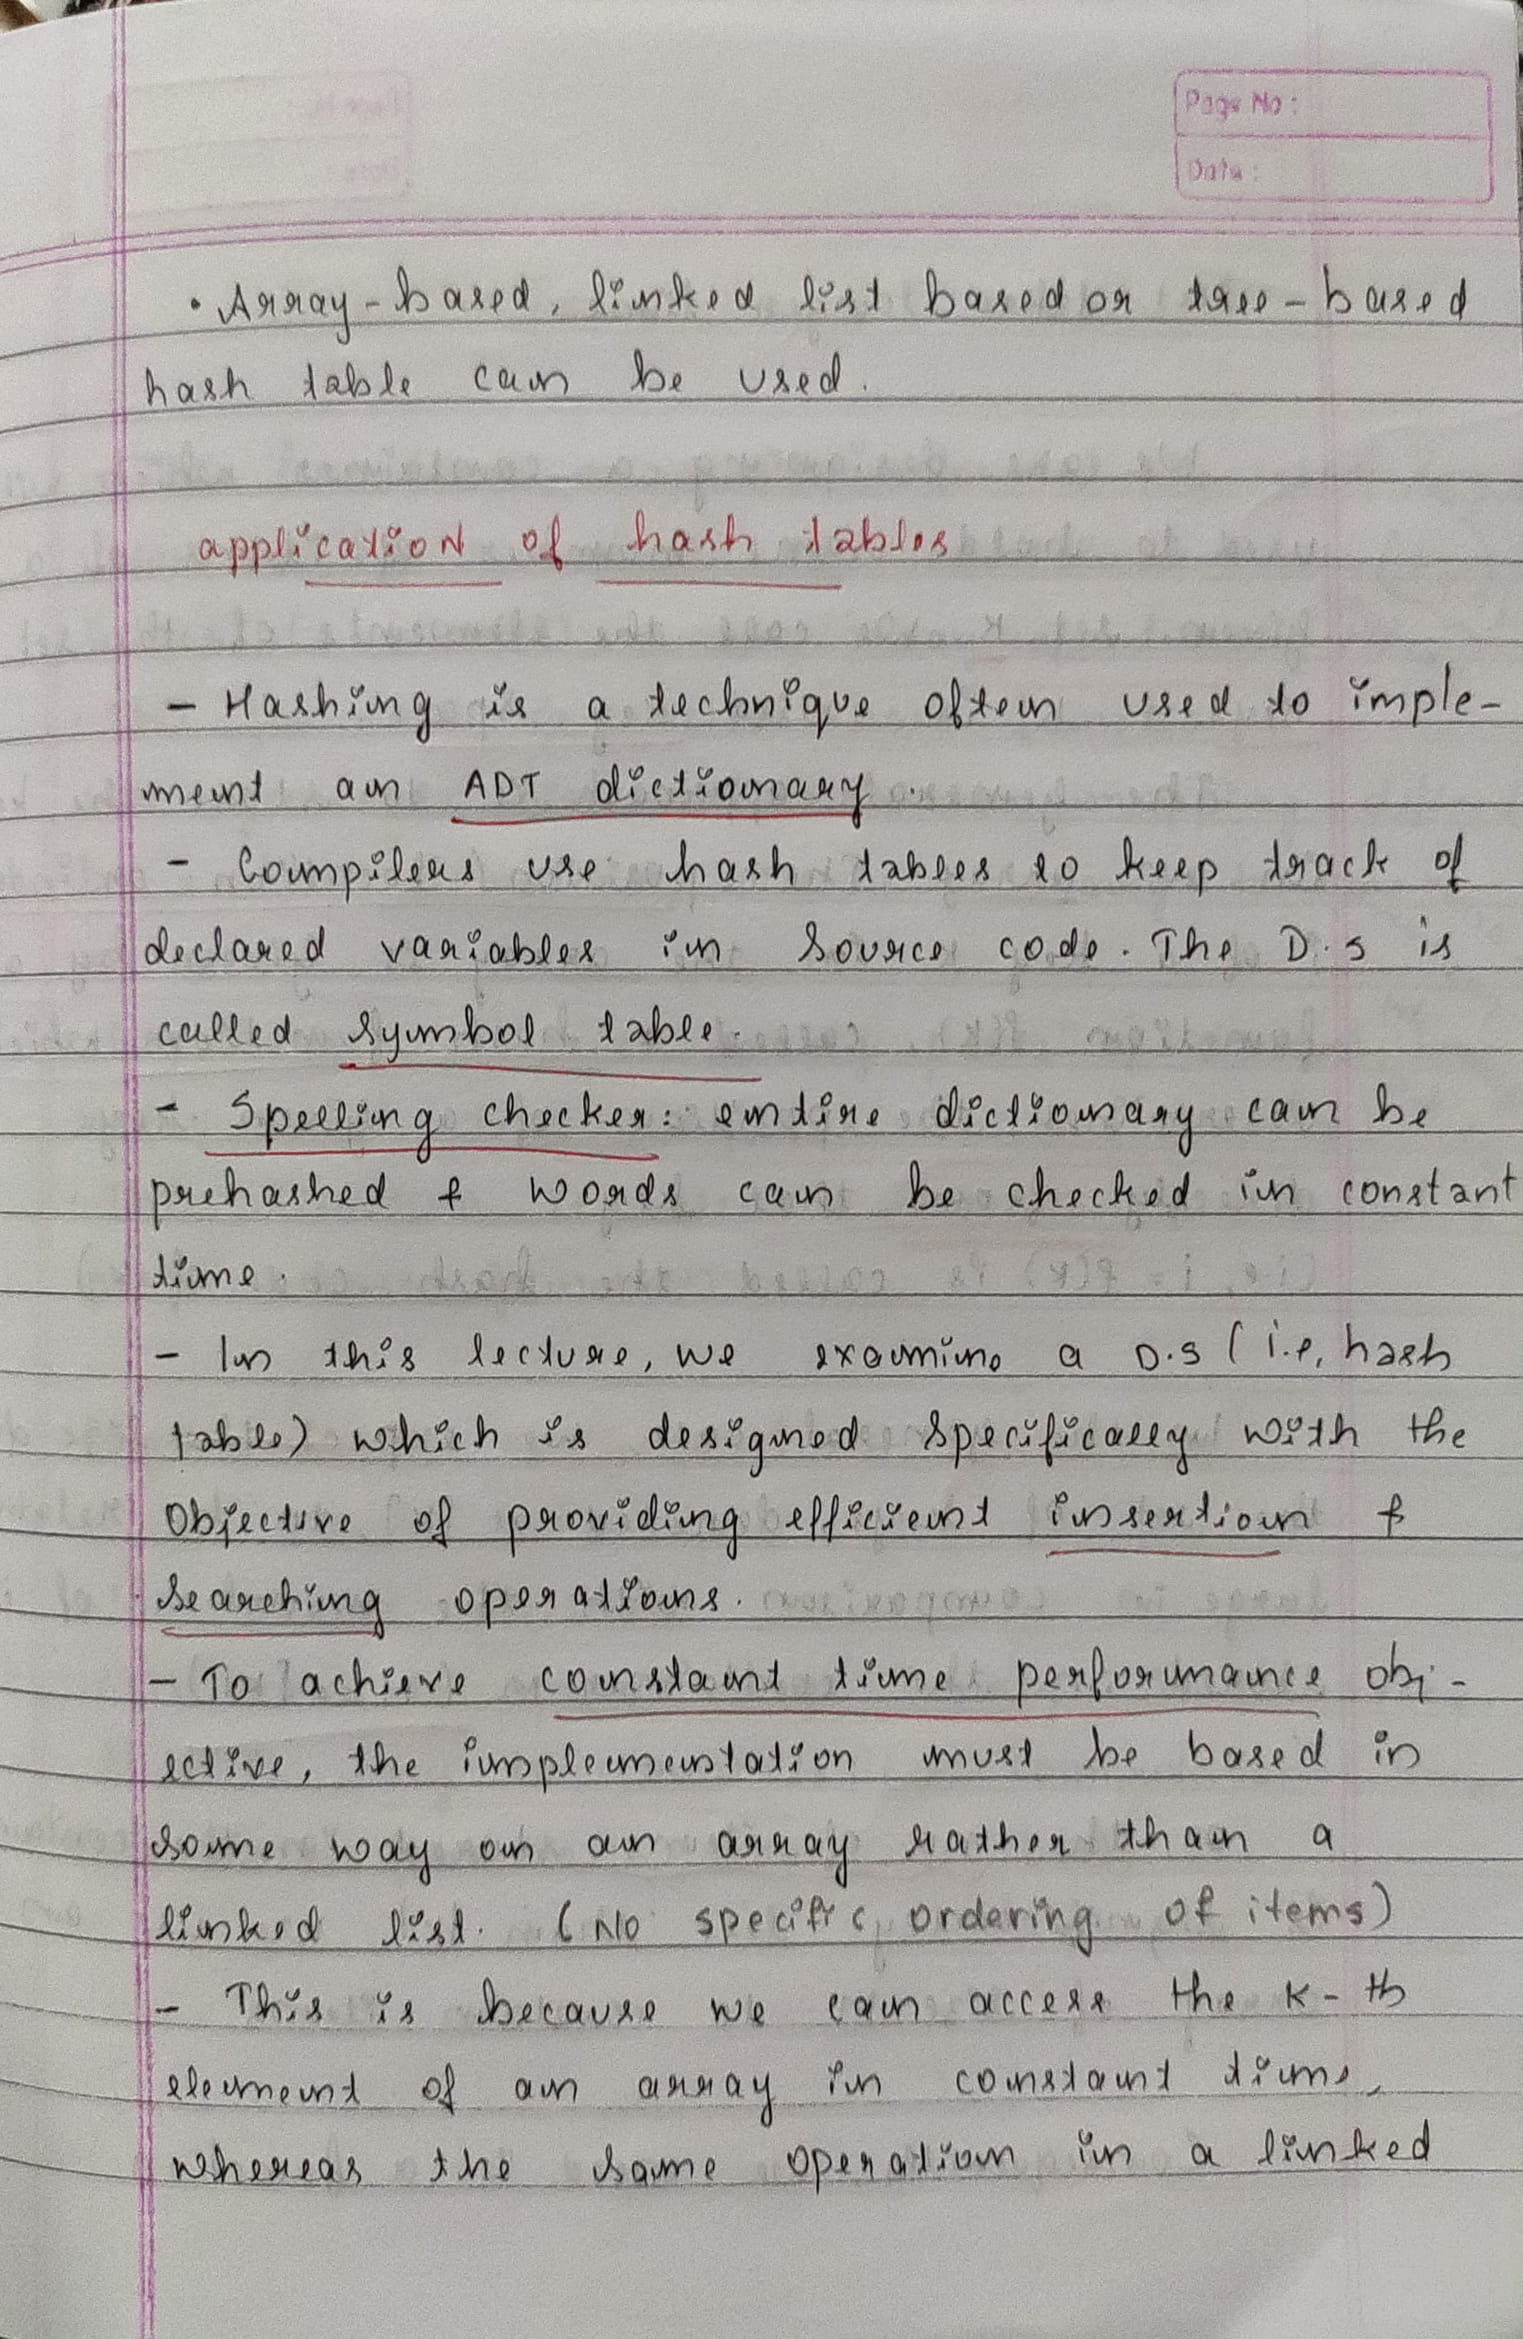 Page No:
Date:
• Array-based, linked list based or tree-based
hash table can be used.
application of hash tables
- Hashing is a technique often used to imple-
ment an ADT dictionary.
- Compilers use hash tables to keep track of
declared variables in source code. The D.S is
called symbol table.
- Spelling checker: entire dictionary can be
prehashed & words can be checked in constant
time.
- In this lecture, we examine a D.S (i.e, hash
table) which is designed specifically with the
objective of providing efficient insertion &
searching operations.
- To achieve constant time performance obj-
ective, the implementation must be based in
some way on an array rather than a
linked list. (No specific ordering of items)
- This is because we can access the K-th
element of an array in constant time,
whereas the same operation in a linked